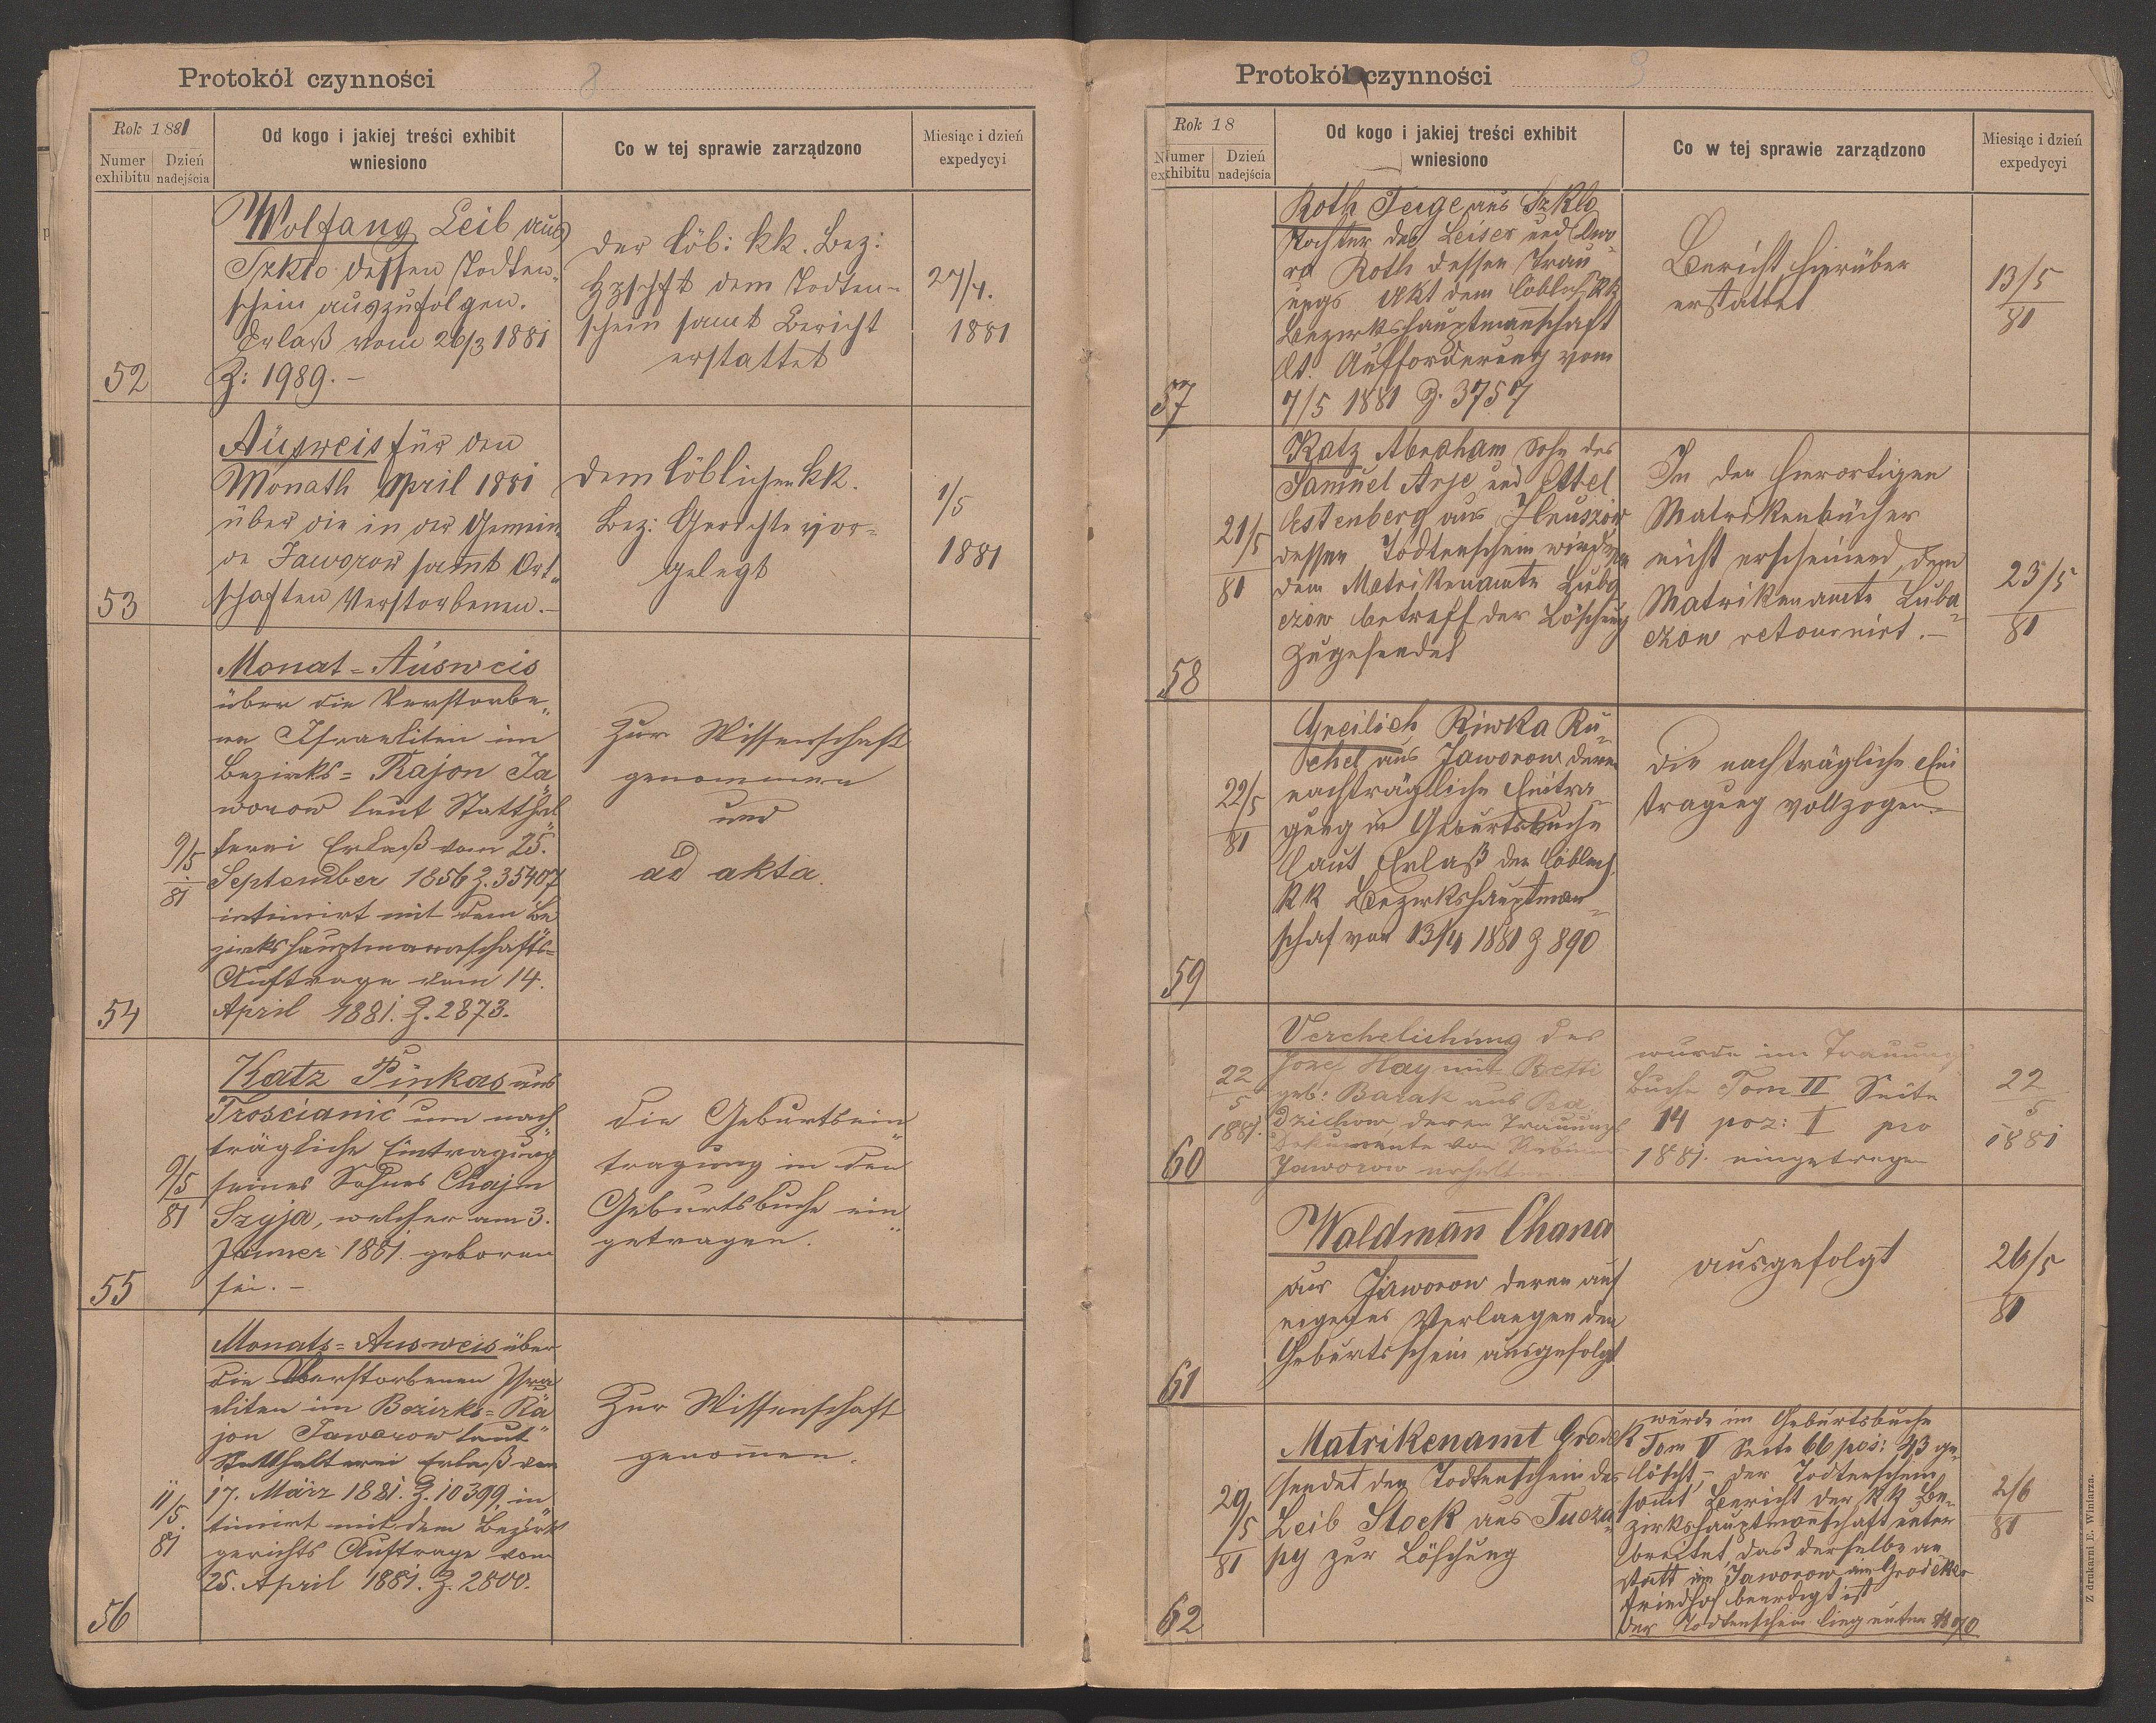 Protokół czynności
8
Rok 1881
Numer exhibitu
Dzień nadejścia
Od kogo i jakiej treści exhibit
wniesiono
Co w tej sprawie zarządzono
Miesiąc i dzień
expedycyi
52
Wolfang Leib aus
Szkło dessen Todten-
schein auszufolgen.
Erlaß vom 26/3 1881
Z: 1989.-
Der löb: kk. Bez:
dem Todten-
schein samt Bericht
erstattet
27/4.
1881
53
Ausweis für den
Monath April 1881
über die in der Gemein-
de Jaworow samt Ort-
schaften Verstorbenen.-
dem löblichen kk.
Bez: Gerichte vor-
gelegt
1/5
1881
54
9/5
81
Monat-Ausweis
über die Verstorbe-
nen Israeliten im
Bezirks-Rajon Ja-
worow laut Statthal-
terei Erlaß vom 25.
September 1856 Z. 35407
intimirt mit dem Be-
zirkshauptmannschafts-
Auftrage vom 14.
April 1881. Z. 2873.
Zur Wissenschaft
genommen
und
ad akta.
55
9/5
81
Katz Pinkas aus
Trościanić um nach-
trägliche Eintragung
seines Sohnes Chajm
Szyja, welcher am 3.
Jänner 1881. geboren
sei.-
Die Geburtsein-
tragung in den
Geburtsbuche ein-
getragen.
56
11/5.
81
Monats-Ausweis über
die Verstorbenen Isra-
eliten im Bezirks-Ra-
jon Jaworow laut
Statthalterei Erlaß vom
17. März 1881. Z. 10399. in-
timirt mit dem Bezirks-
gerichts Auftrage vom
25. April 1881. Z. 2800.
Zur Wissenschaft
genommen.
Protokół czynności
9
Rok 18
Numer exhibitu
Dzień nadejścia
Od kogo i jakiej treści exhibit
wniesiono
Co w tej sprawie zarządzono
Miesiąc i dzień
expedycyi
57
Roth Feige aus Szkło
Tochter des Leiser und Dwo-
ra Roth dessen Trau-
ungs Akt dem löblich kk
Bezirkshauptmanschaft
lt. Aufforderung vom
7/5 1881 Z. 3757
Bericht hierüber
erstattet
13/5
81
58
21/5
81
Katz Abraham Sohn des
Samuel Arje und Ettel
Estenberg aus Hruszów
dessen Todtenschein wird von
dem Matrikenamte Luba-
czów betreff der Löschung
zugesendet
In den hierortigen
Matrikenbücher
nicht erscheinend, dem
Matrikenamte Luba-
czow retournirt.-
23/5
81
59
22/5
81
Greilich Riwka Ru-
chel aus Jaworow deren
nachträgliche Eintra-
gung in Geburtsbuche
laut Erlaß der löblich.
kk Bezirkshauptman-
schaf von 13/4 1881 Z 890
Die nachträgliche Ein
tragung vollzogen.-
60
22
5
1881.
Verehelichung des
Josef Hay mit Betti
geb: Barak aus Ra-
dzichow, deren Trauungs-
Dokumente von
Jaworow erhalten
wurde im Trauungs
Buche Tom II Seite
14 poz: I pro
1881. eingetragen
22
5
1881
61
Waldmann Chana
aus Jaworow deren auf
eigenes Verlangen den
Geburtsschein ausgefolgt
ausgefolgt
26/5
81
62
29/5
81
Matrikenamt Grodek
sendet den Todtenschein des
Leib Stock aus Tucza-
py zur Löschung
wurde im Geburtsbuche
Tom V Seite 66 pos: 43 ge-
löscht- der Todtenschein
samt Bericht der kk Be-
zirkshauptmanschaft unter
breitet, daß derselbe an
statt im Jaworow am Grodeker
Friedhof beerdigt ist
Der Todtenschein lieg unter
2/6
81
Z drukarni E. Winiarza.